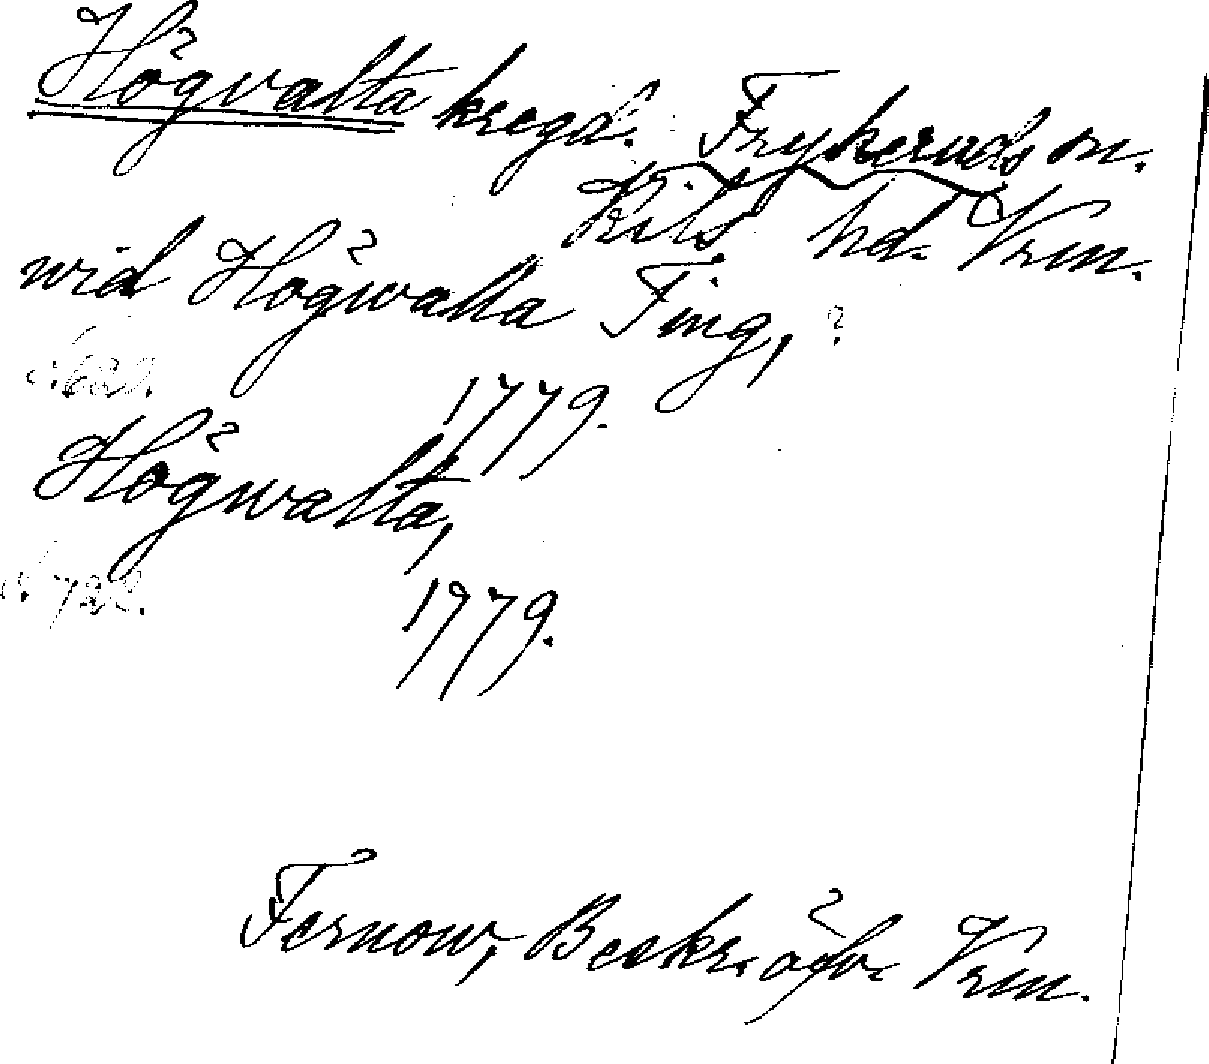 Högvalta kregd. Frykeruds sn.
Kils hd. Vrm.
wid Högwalta Ting, ?
s. 622.
1779.
Högwalta,
s. 722.
1779.
Fernow, Beskr. öfv. Vrm.